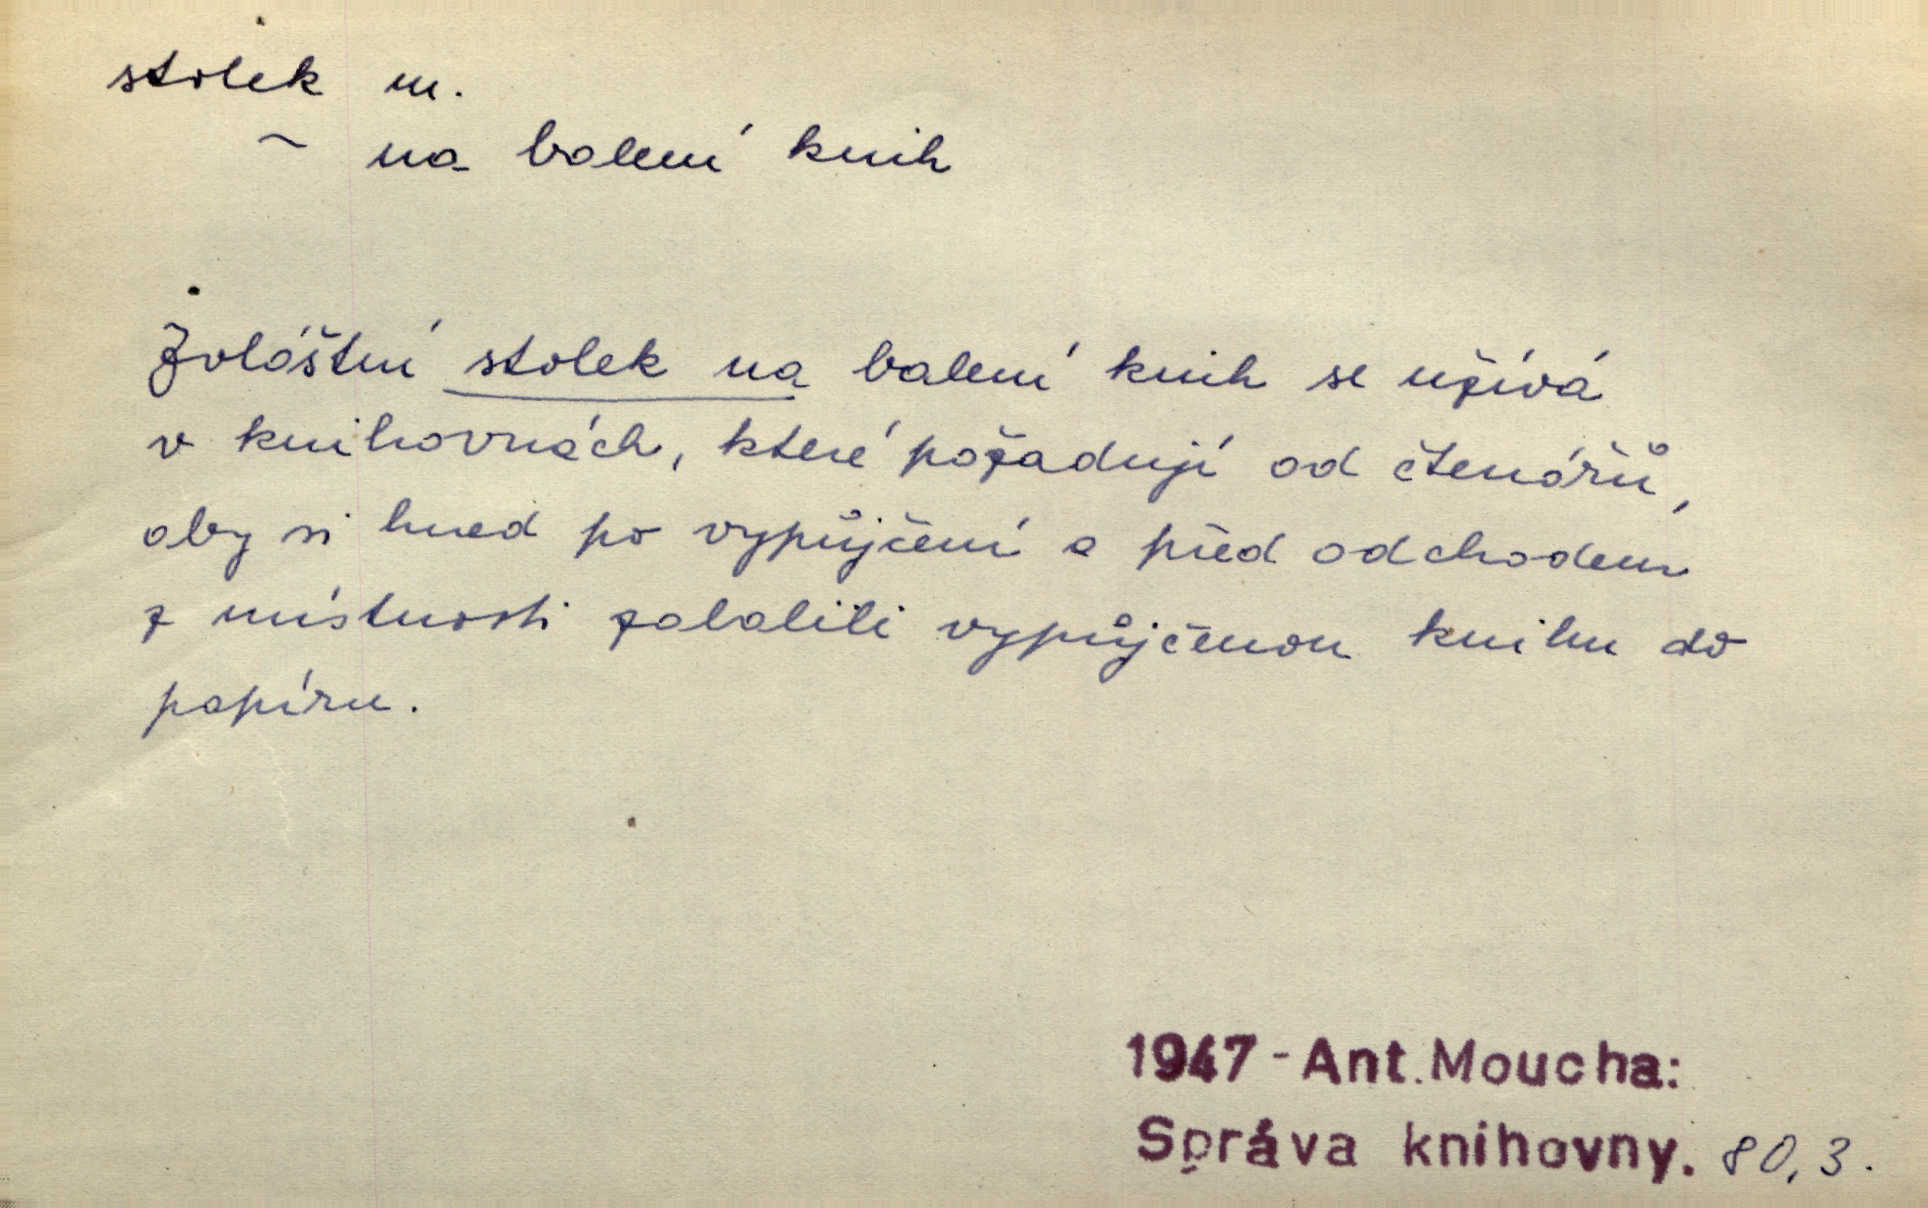 stolek m.
~ na balení knih
Zvláštní stolek na balení knih se užívá
v knihovnách, které požadují od čtenářů,
aby si hned po vypůjčení a před odchodem
z místnosti zabalili vypůjčenou knihu do
papíru.
1947 - Ant. Moucha:
Správa knihovny. 80,3.